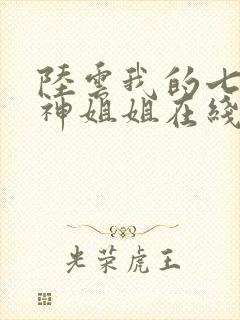 陸雲我的七
神姐姐在綫
光荣虎王